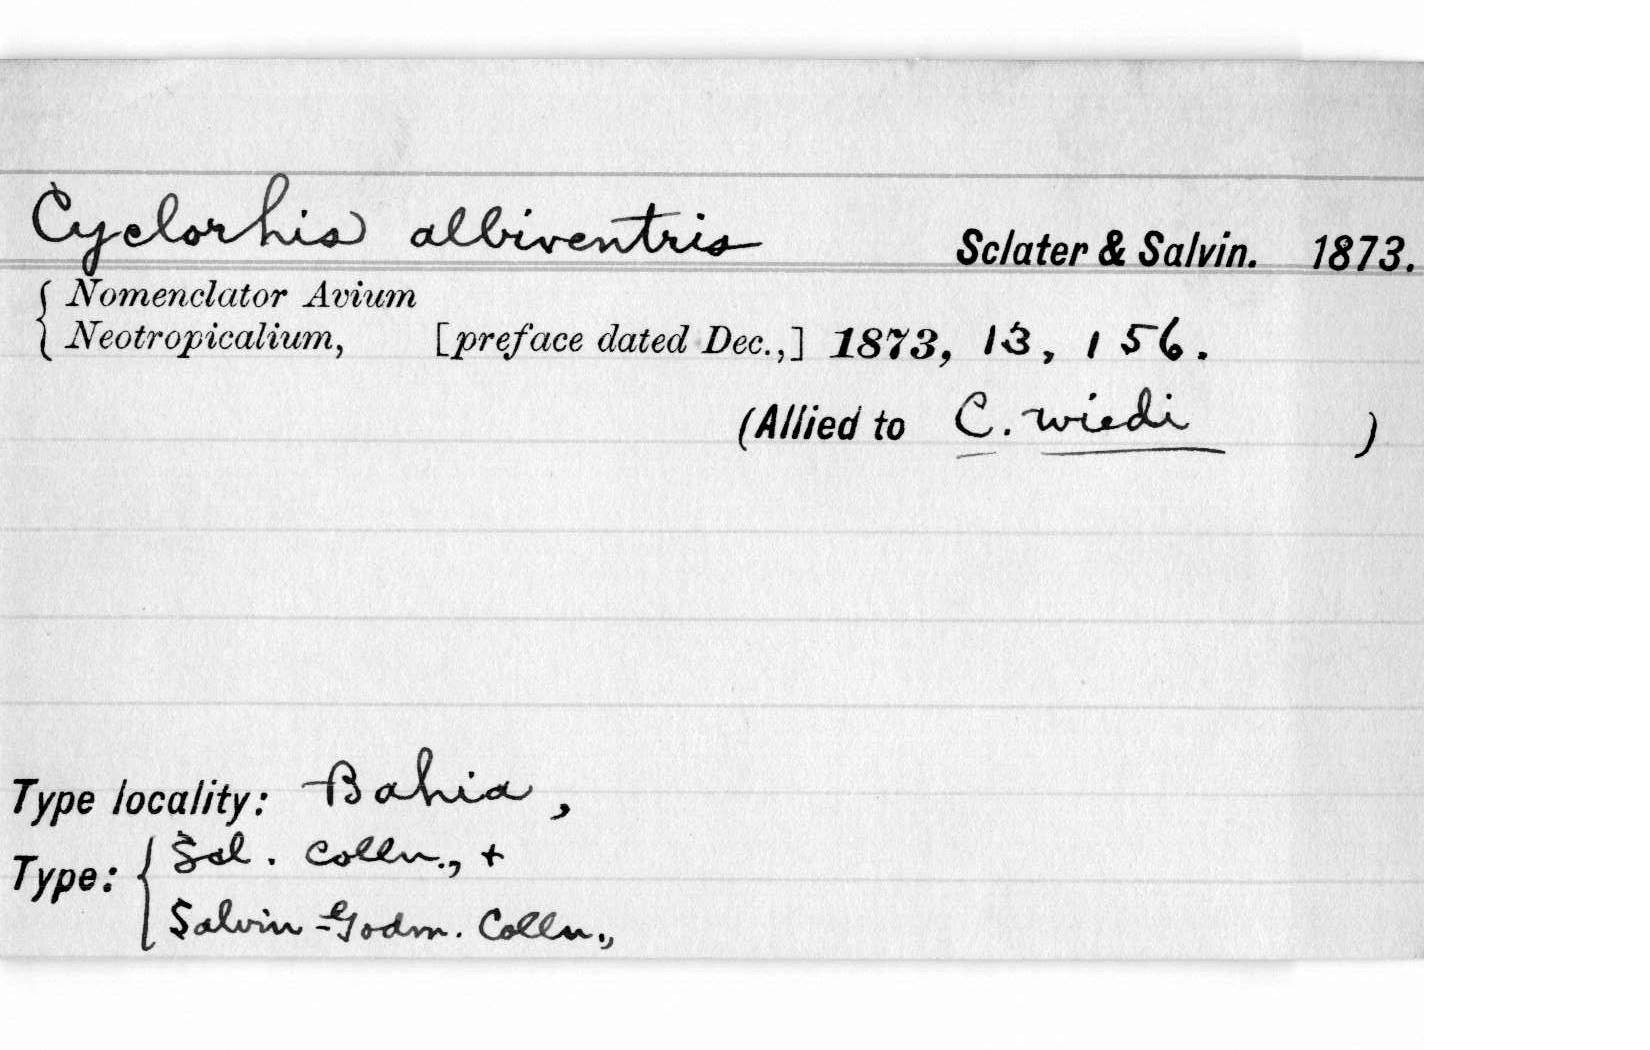 Cyclorhis albiventris Sclater & Salvin. 1873.
Nomenclator Avium
Neotropicalium, [preface dated Dec.,] 1873, 13, 156.
(Allied to C. wiedi )
Type locality: Bahia,
Type: Scl. Colln., +
Salvin-Godm. Colln.,